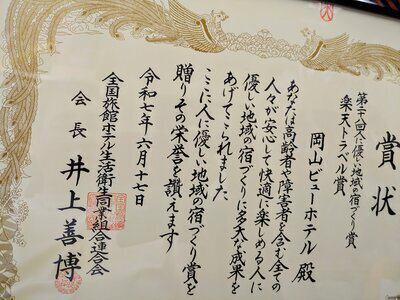 賞状
第二十八回人に優しい地域の宿づくり賞
楽天トラベル賞
岡山ビューホテル 殿
あなたは高齢者や障害者を含む全ての
人々が安心して快適に楽しめる人に
優しい地域の宿づくりに多大な成果を
あげてこられました
ここに人に優しい地域の宿づくり賞を
贈りその栄誉を讃えます
令和七年六月十七日
全国旅館ホテル生活衛生同業組合連合会
会長 井上善博